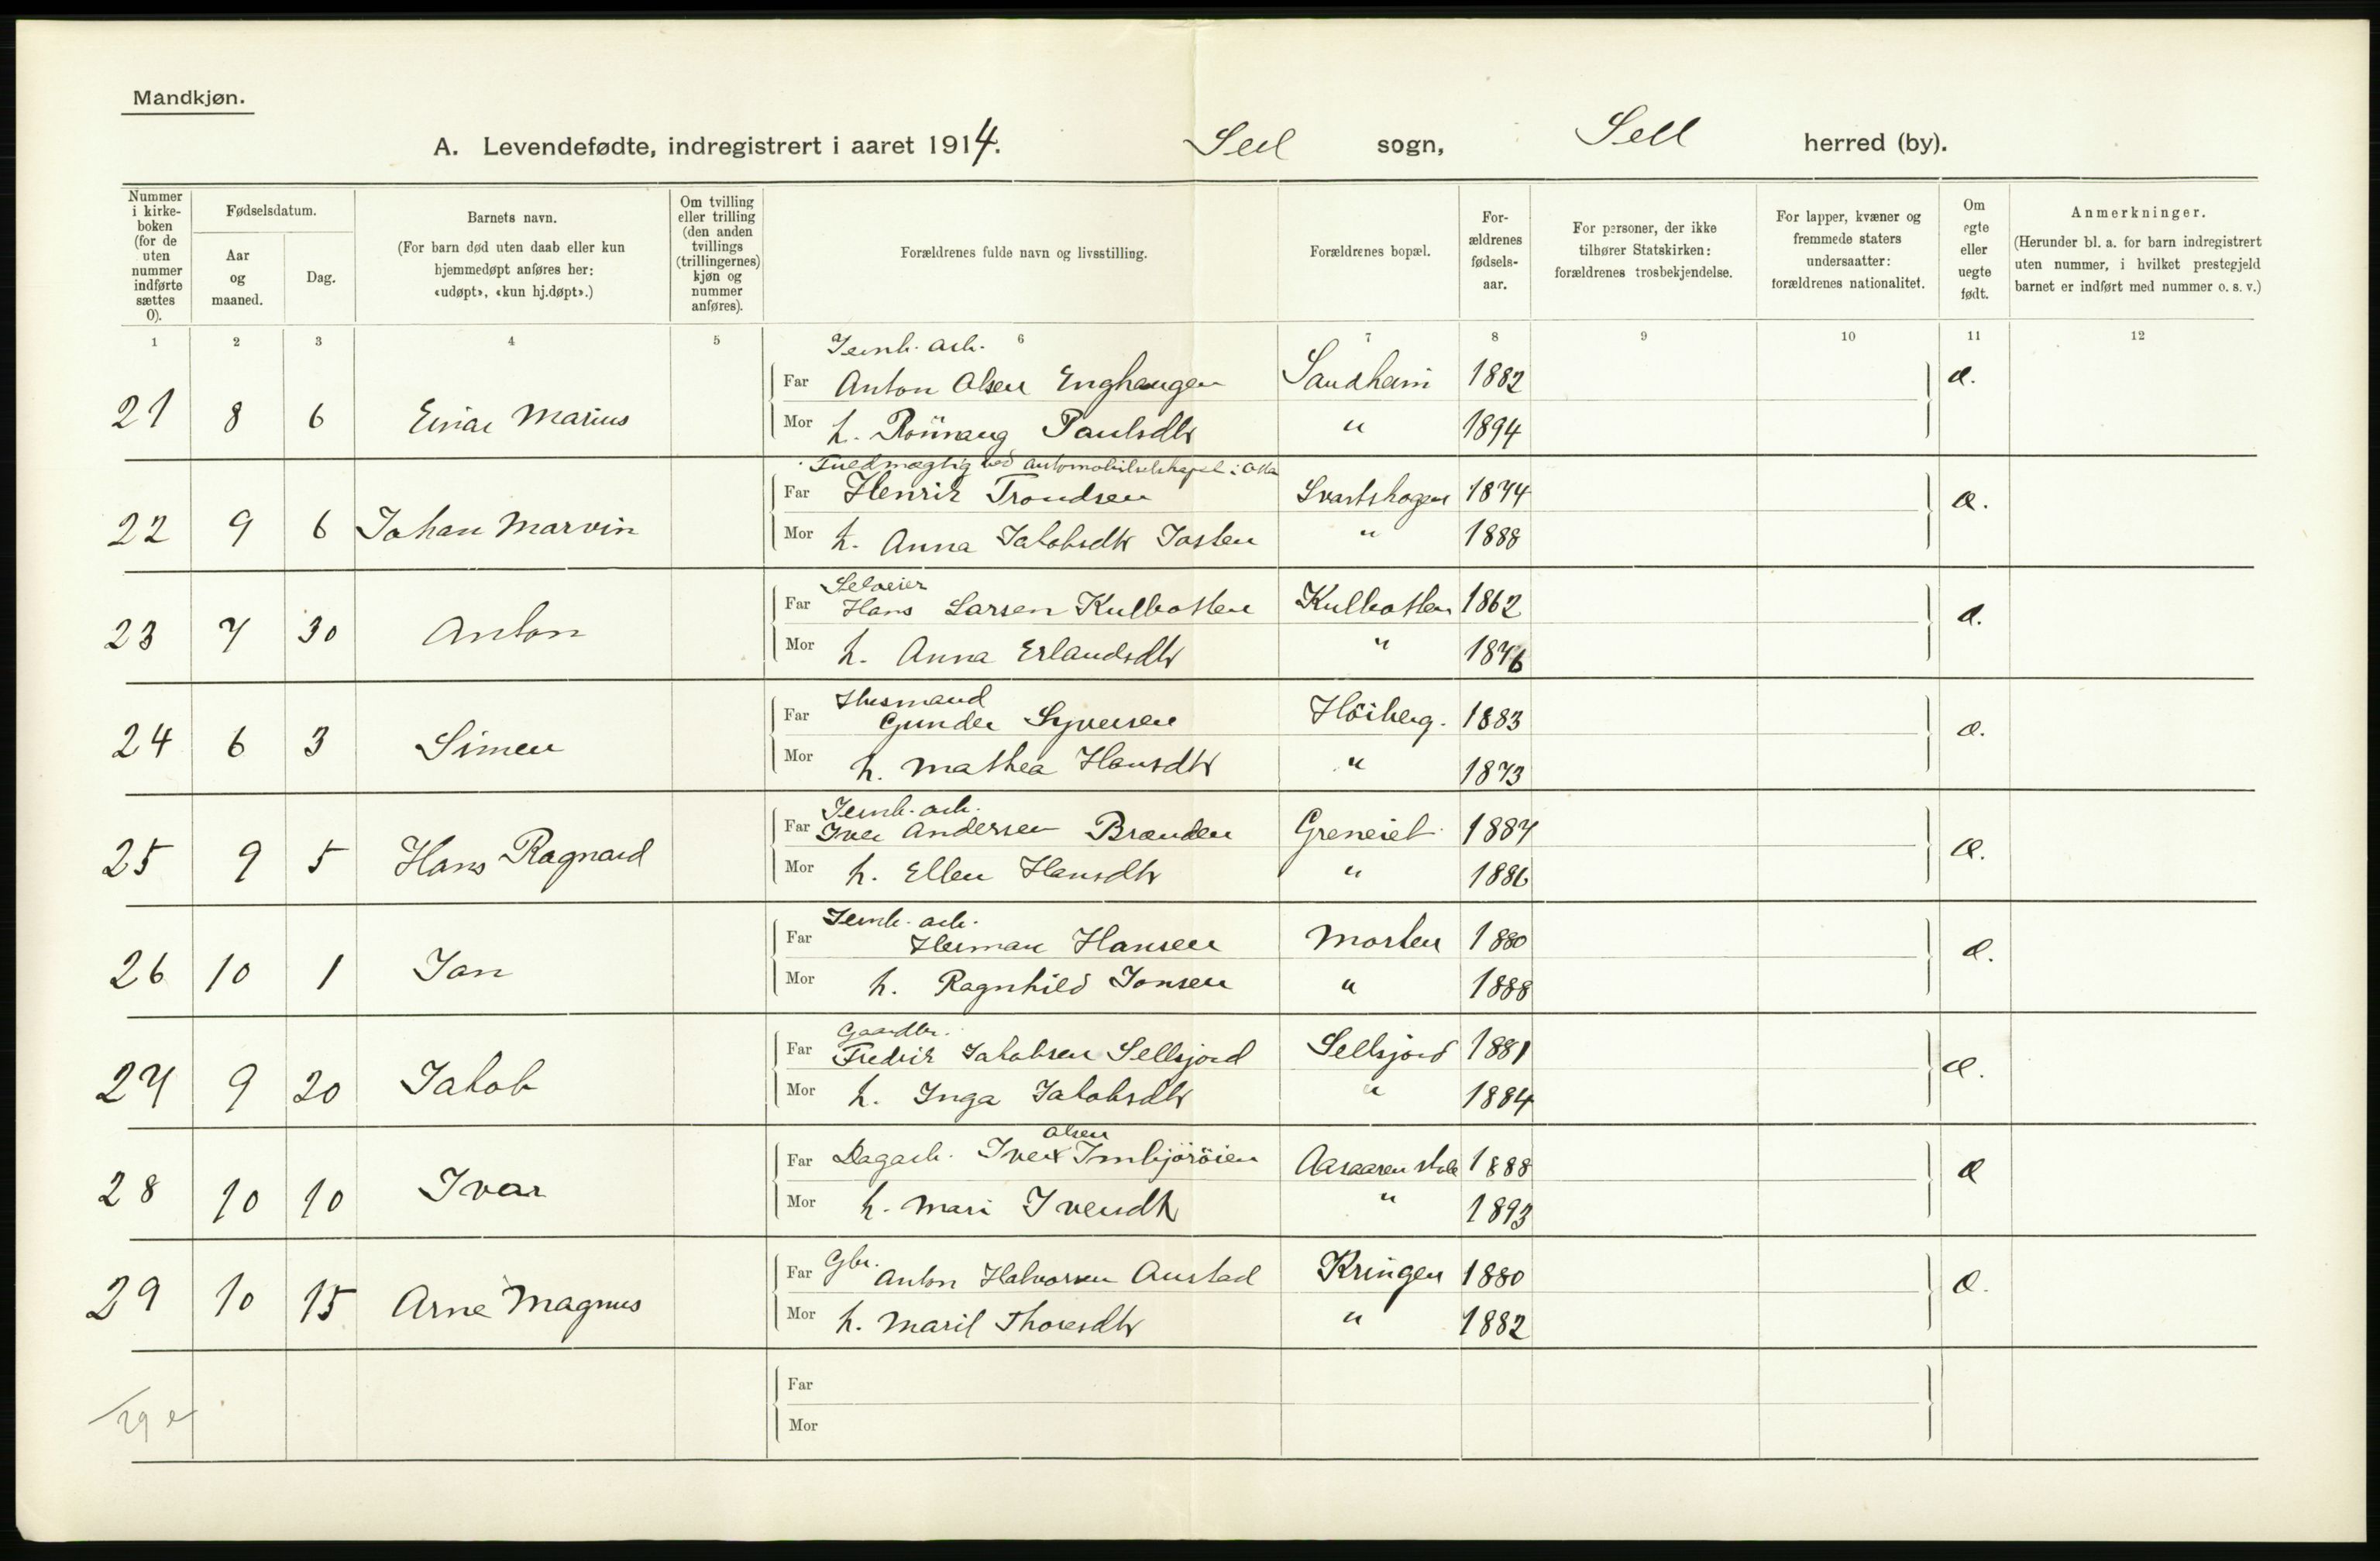 Mandkjøn.
A. Levendefødte, indregistrert i aaret 1914. Sell sogn, Sell herred (by).
Nummer i kirke-boken (for de uten nummer indførte sættes 0).
Fødselsdatum.
Aar og maaned.
Dag.
Barnets navn.
(For barn død uten daab eller kun hjemmedøpt anføres her: «udøpt», «kun hj.døpt».)
Om tvilling eller trilling (den anden tvillings (trillingernes) kjøn og nummer anføres).
Forældrenes fulde navn og livsstilling.
Forældrenes bopæl.
For-ældrenes fødsels-aar.
For personer, der ikke tilhører Statskirken: forældrenes trosbekjendelse.
For lapper, kvæner og fremmede staters undersaatter: forældrenes nationalitet.
Om egte eller uegte født.
Anmerkninger.
(Herunder bl. a. for barn indregistrert uten nummer, i hvilket prestegjeld barnet er indført med nummer o. s. v.)
1 2 3 4 5 6 7 8 9 10 11 12
Jernb. arb.
Far Anton Olsen Enghaugen Sandheim 1882 æ.
21 8 6 Einar Marius
Mor h. Rönnaug Paulsdtr " 1894
Fuldmægtig ved automobilselskapet i Otta
Far Henrik Trondsen Svartskogen 1874 æ.
22 9 6 Johan Marvin
Mor h. Anna Jakobsdtr Josten " 1888
Selveier
Far Hans Larsen Kulbotten Kulbotten 1862 æ.
23 7 30 Anton
Mor h. Anna Erlandsdtr " 1876
Husmand
Far Gunder Syversen Höiberg. 1883 æ.
24 6 3 Simen
Mor h. Mathea Hansdtr " 1873
Jernb. arb.
Far Iver Andersen Brænden Greneiet 1887 æ.
25 9 5 Hans Ragnard
Mor h. Ellen Hansdtr " 1886
Jernb. arb.
Far Herman Hansen Morten 1880 æ.
26 10 1 Jan
Mor h. Ragnhild Jonsen " 1888
Gaardbr.
Far Fredrik Jakobsen Sellsjord Sellsjord 1881 æ.
27 9 20 Jakob
Mor h. Inga Jakobsdtr " 1884
Olsen
Far Dagarb. Iver Imbjöröien 1888 æ
28 10 10 Ivar
Mor h. Mari Iversdtr " 1893
Far Gbr. Anton Halvorsen Austad Kringen 1880 æ.
29 10 15 Arne Magnus
Mor h. Marit Thoresdtr " 1882
Far
29
Mor